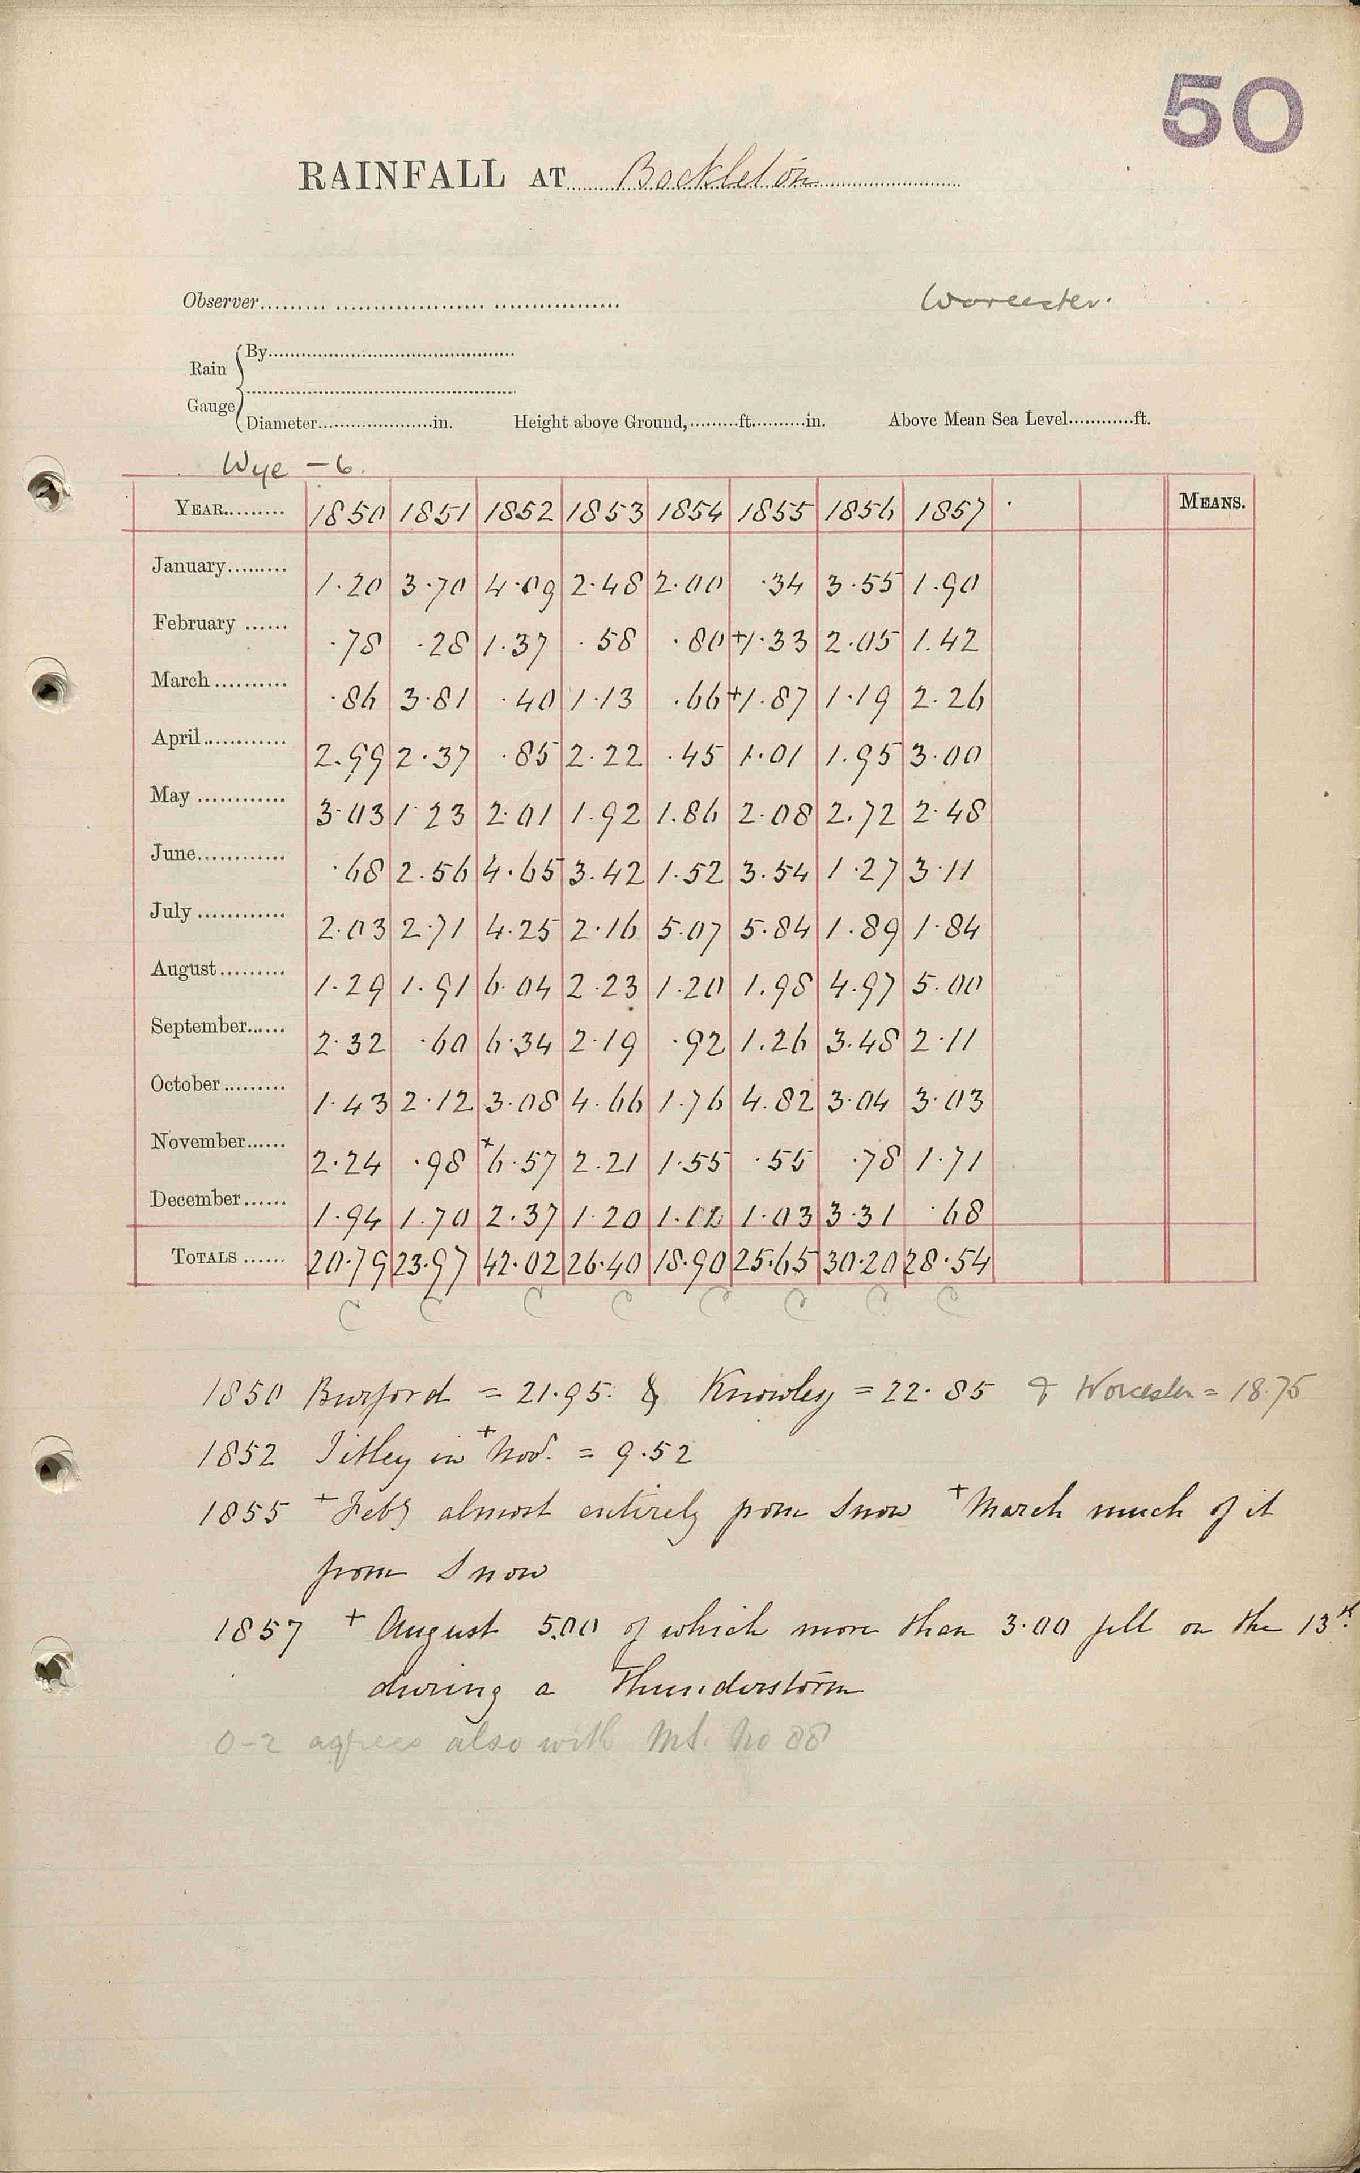 50
RAINFALL AT Bockleton
Observer Worcester.
Rain Gauge
By
Diameter in. Height above Ground, ft. in. Above Mean Sea Level ft.
Wye - 6.
YEAR 1850 1851 1852 1853 1854 1855 1856 1857 MEANS.
January 1.20 3.70 4.09 2.48 2.00 .34 3.55 1.90
February .78 .28 1.37 .58 .80 +1.33 2.05 1.42
March .86 3.81 .40 1.13 .66 +1.87 1.19 2.26
April 2.99 2.37 .85 2.22 .45 1.01 1.95 3.00
May 3.03 1.23 2.01 1.92 1.86 2.08 2.72 2.48
June .68 2.56 4.65 3.42 1.52 3.54 1.27 3.11
July 2.03 2.71 4.25 2.16 5.07 5.84 1.89 1.84
August 1.29 1.91 6.04 2.23 1.20 1.98 4.97 5.00
September 2.32 .60 6.34 2.19 .92 1.26 3.48 2.11
October 1.43 2.12 3.08 4.66 1.76 4.82 3.04 3.03
November 2.24 .98 +6.57 2.21 1.55 .55 .78 1.71
December 1.94 1.70 2.37 1.20 1.03 3.31 .68
TOTALS 20.79 23.97 42.02 26.40 18.90 25.65 30.20 28.54
C C C C C C C C
1850 Burford = 21.95. & Knowley = 22.85 & Worcester = 18.75
1852 Titley in + Nov. = 9.52
1855 + Feby almost entirely from Snow + March much of it
from Snow
1857 + August 5.00 of which more than 3.00 fell on the 13th.
during a Thunderstorm
0-2 agrees also with MS. No 88